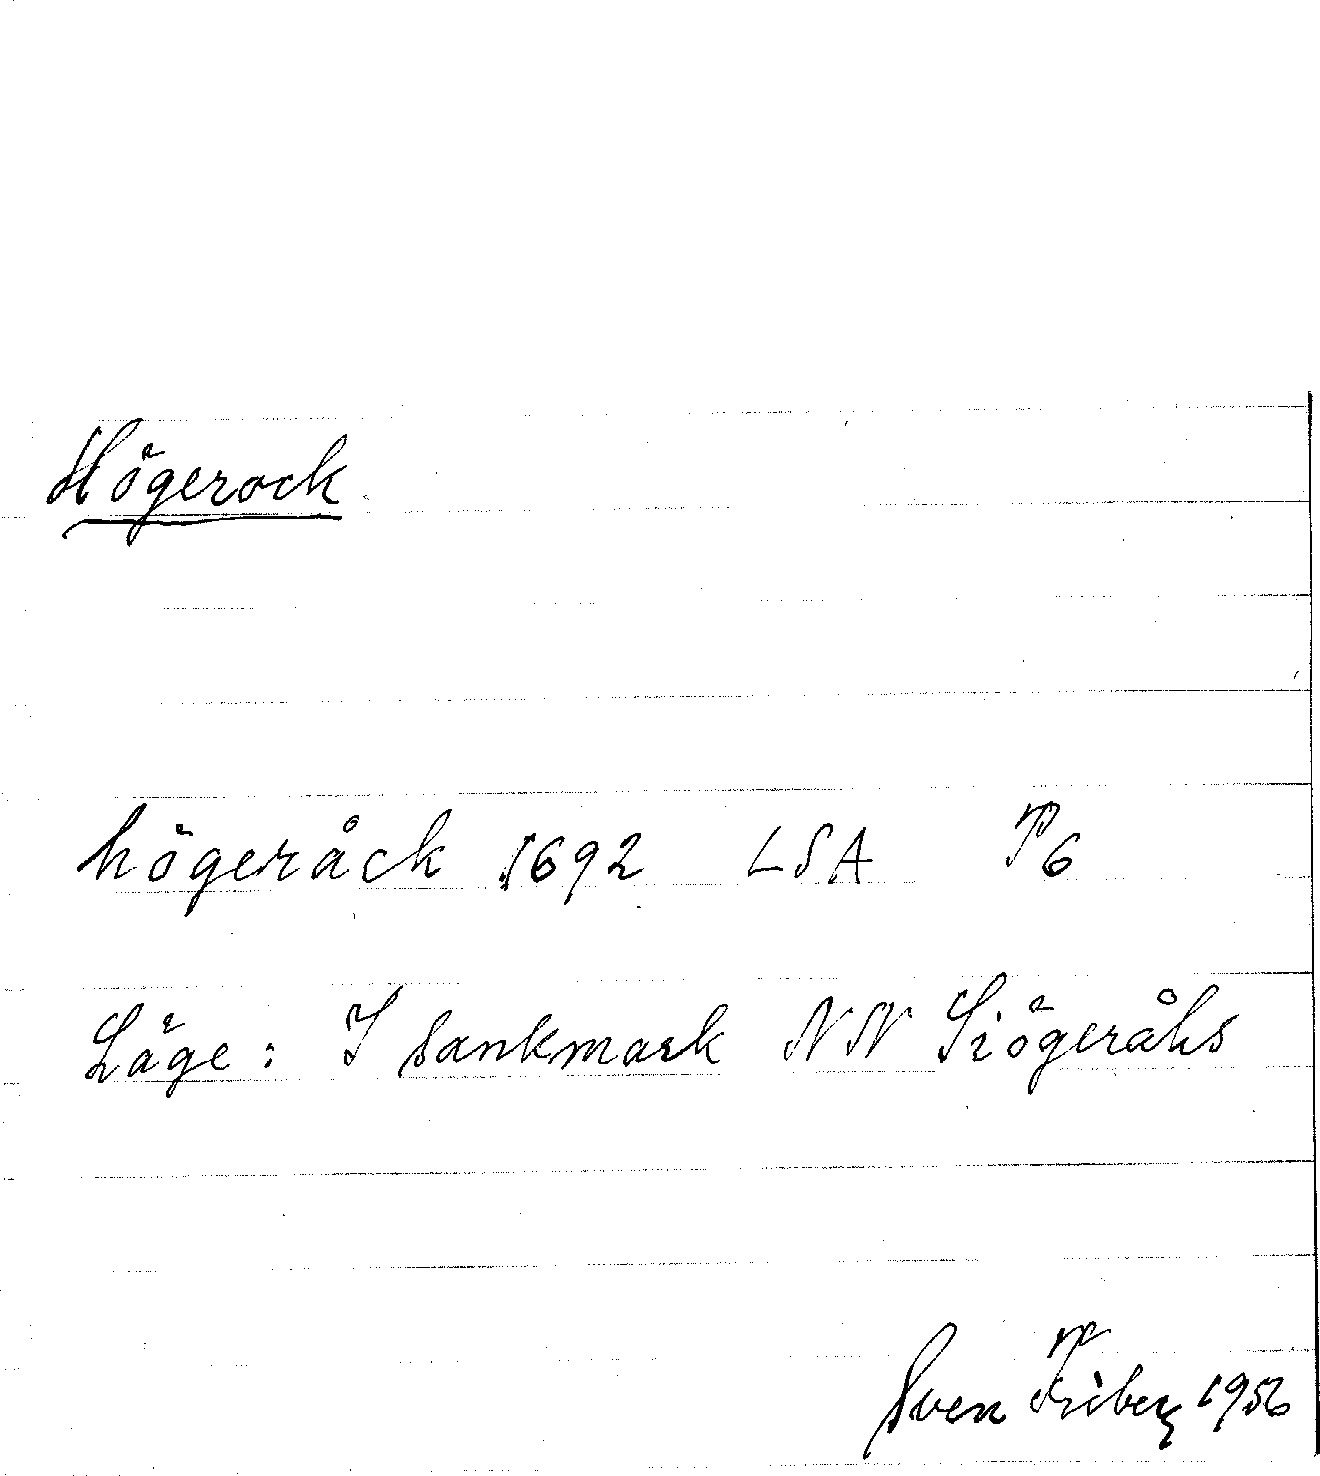 Högerock
högeråck 1692 LSA P6
Läge: I sankmark NN Siögeråhs
Sven Friberg 1956